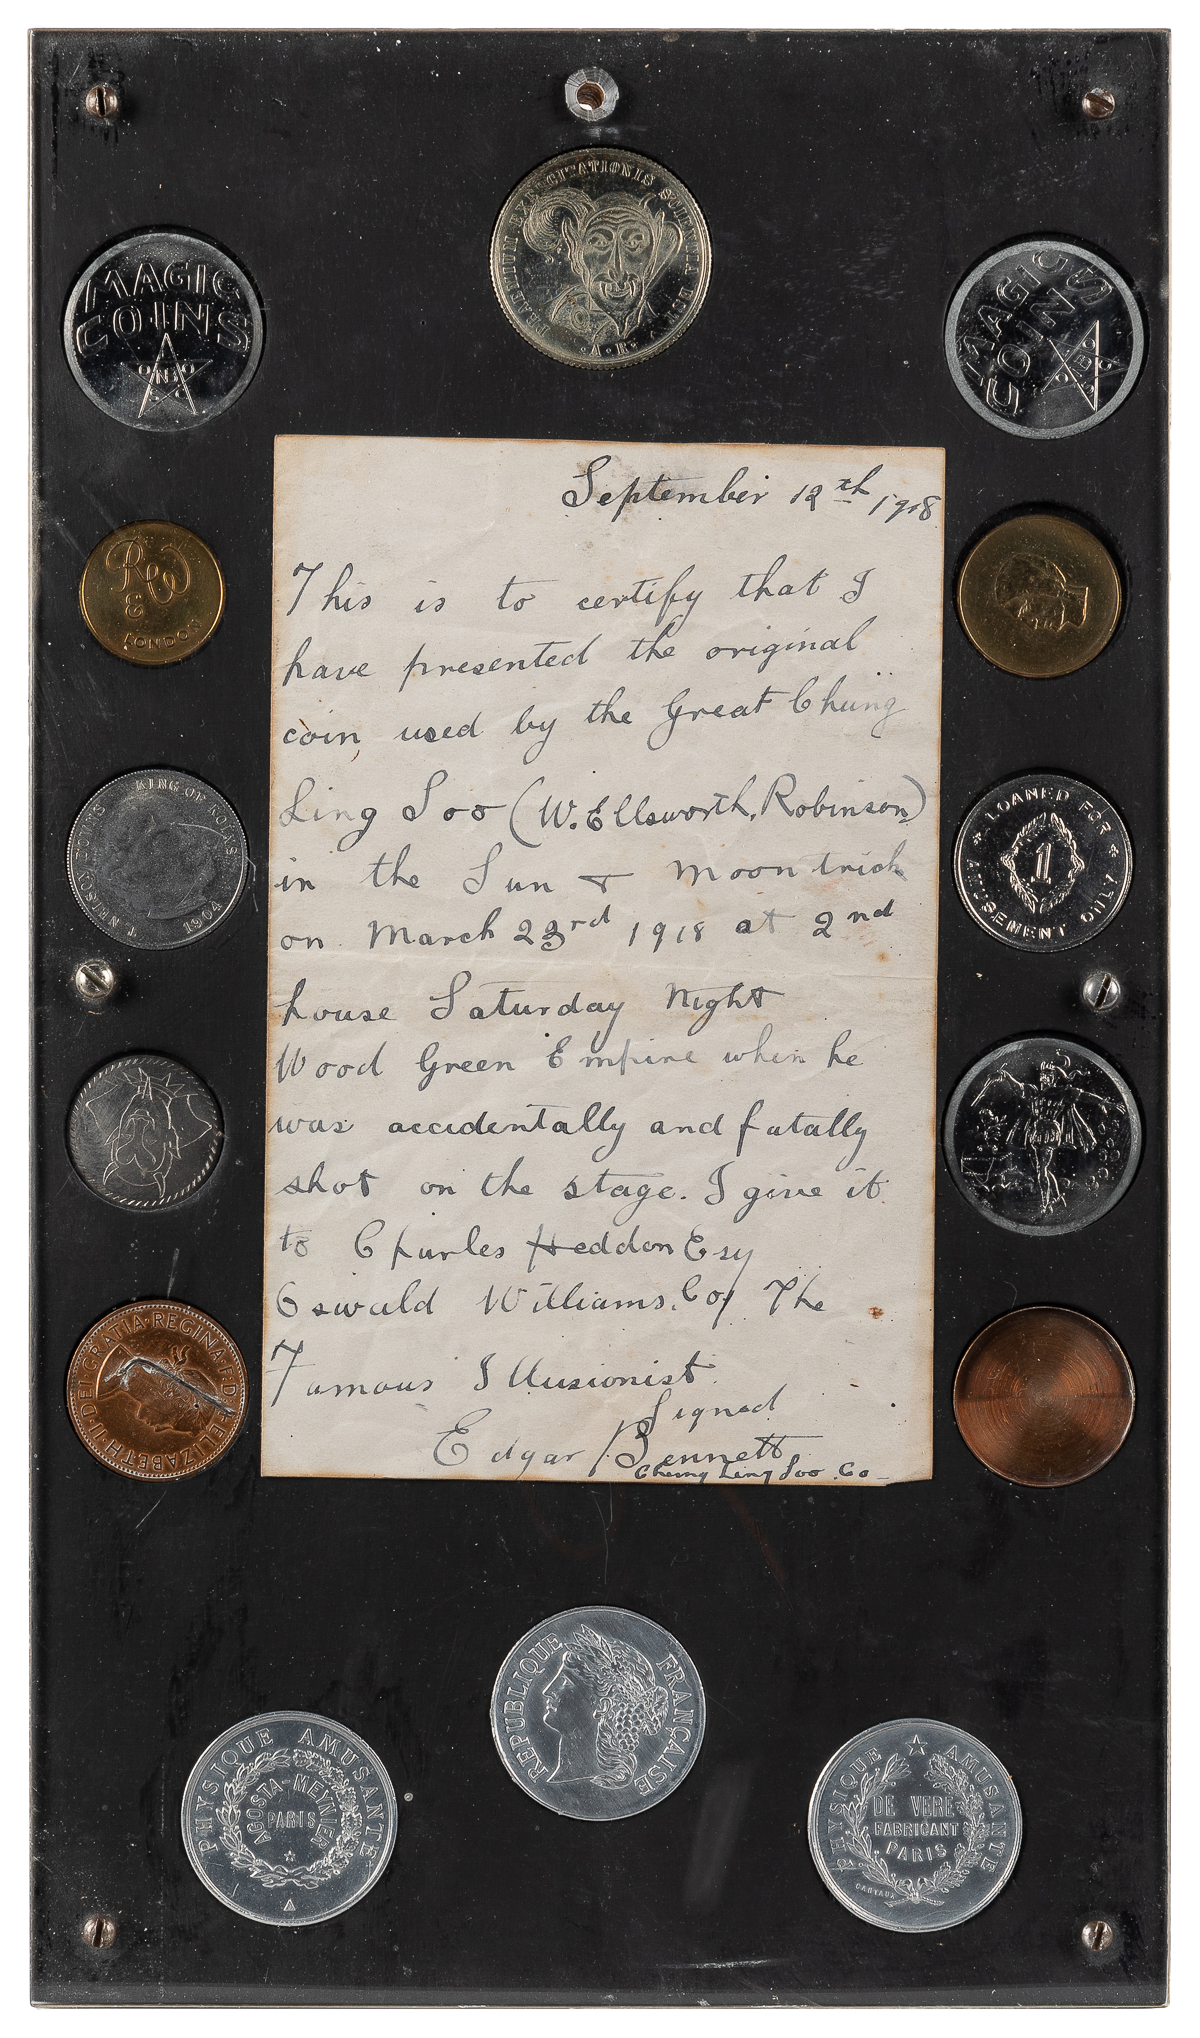 EXERCITATIONIS SCIENTIA EST
· A · R ·
MAGIC
COINS
MAGIC
COINS
September 12th 1918
This is to certify that I
have presented the original
coin used by the Great Chung
Ling Soo (W. Ellsworth, Robinson)
in the Sun & Moon trick
on March 23rd 1918 at 2nd
house Saturday Night
Wood Green Empire when he
was accidentally and fatally
shot on the stage. I give it
to Charles Heddon Esq
Oswald Williams. Coy The
Famous Illusionist.
Signed
Edgar Bennett
Chung Ling Soo. Co
R & W
LONDON
T. NELSON DOWNS KING OF KOINS
1904
LOANED FOR
1
AMUSEMENT ONLY
ELIZABETH·II·DEI·GRATIA·REGINA·F:D·
REPUBLIQUE FRANÇAISE
PHYSIQUE AMUSANTE
AGOSTA-MEYNIER
PARIS
PHYSIQUE AMUSANTE
DE VERE
FABRICANT
PARIS
CARTAUX